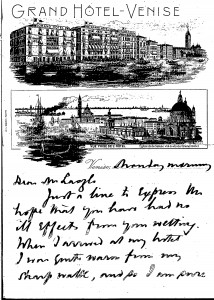 GRAND HOTEL-VENISE
Venise, Monday morning
Dear Mr
Just a line to express the
hope that you have had no
ill effects from your wetting.
When I arrived at my hotel
I was quite warm from my
sharp walk, and so I am